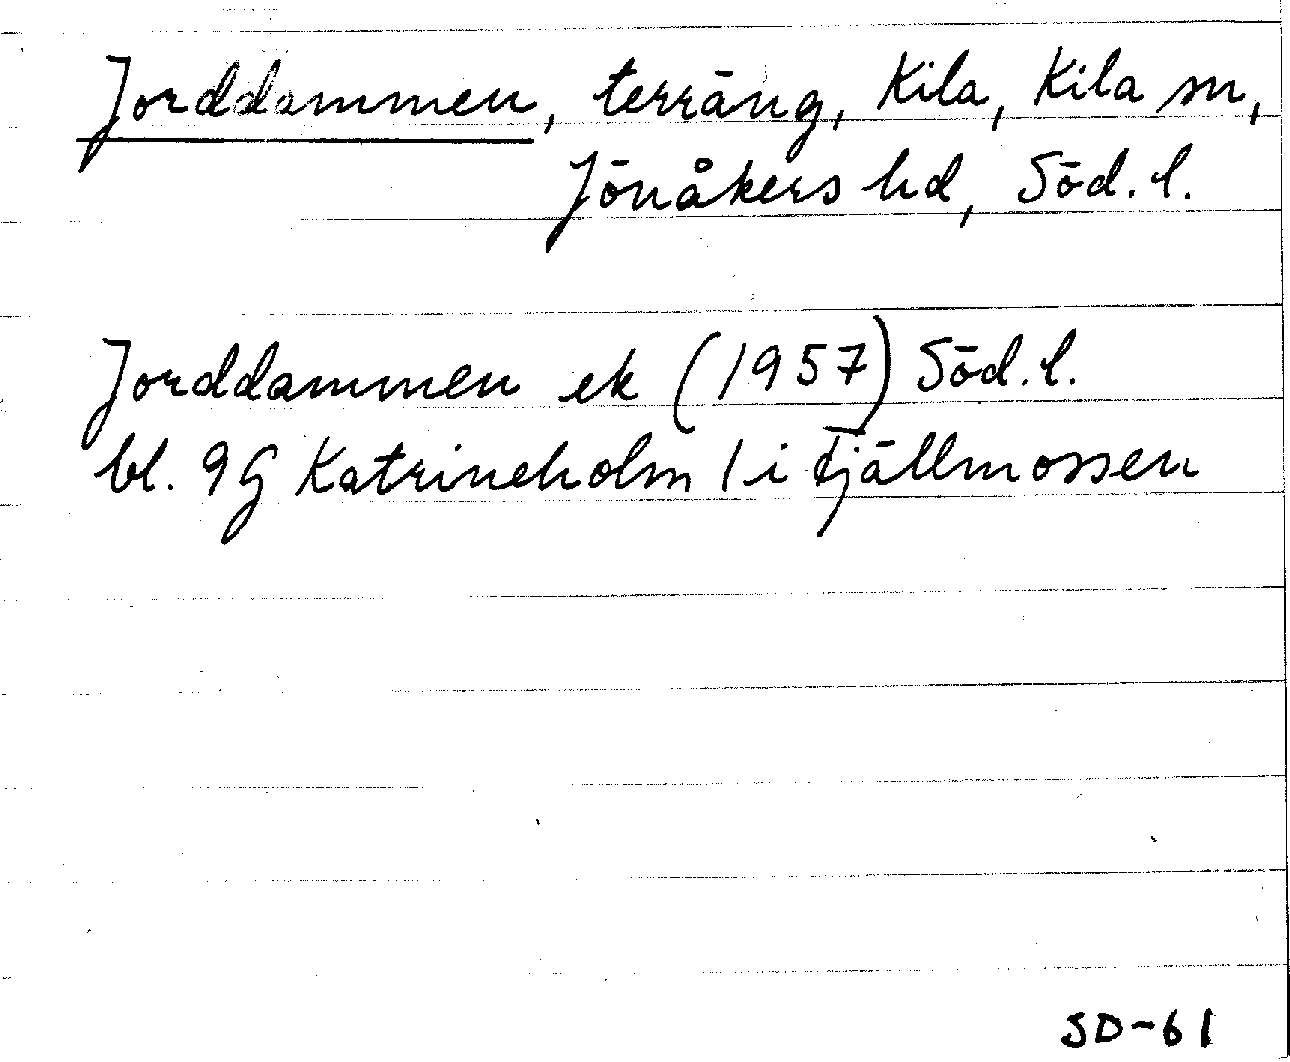 Jorddammen, terräng, Kila, Kila sn,
Jönåkers hd, Söd. l.
Jorddammen ek (1957) Söd. l.
bl. 9G Katrineholm 1 i Fjällmossen
SD-61